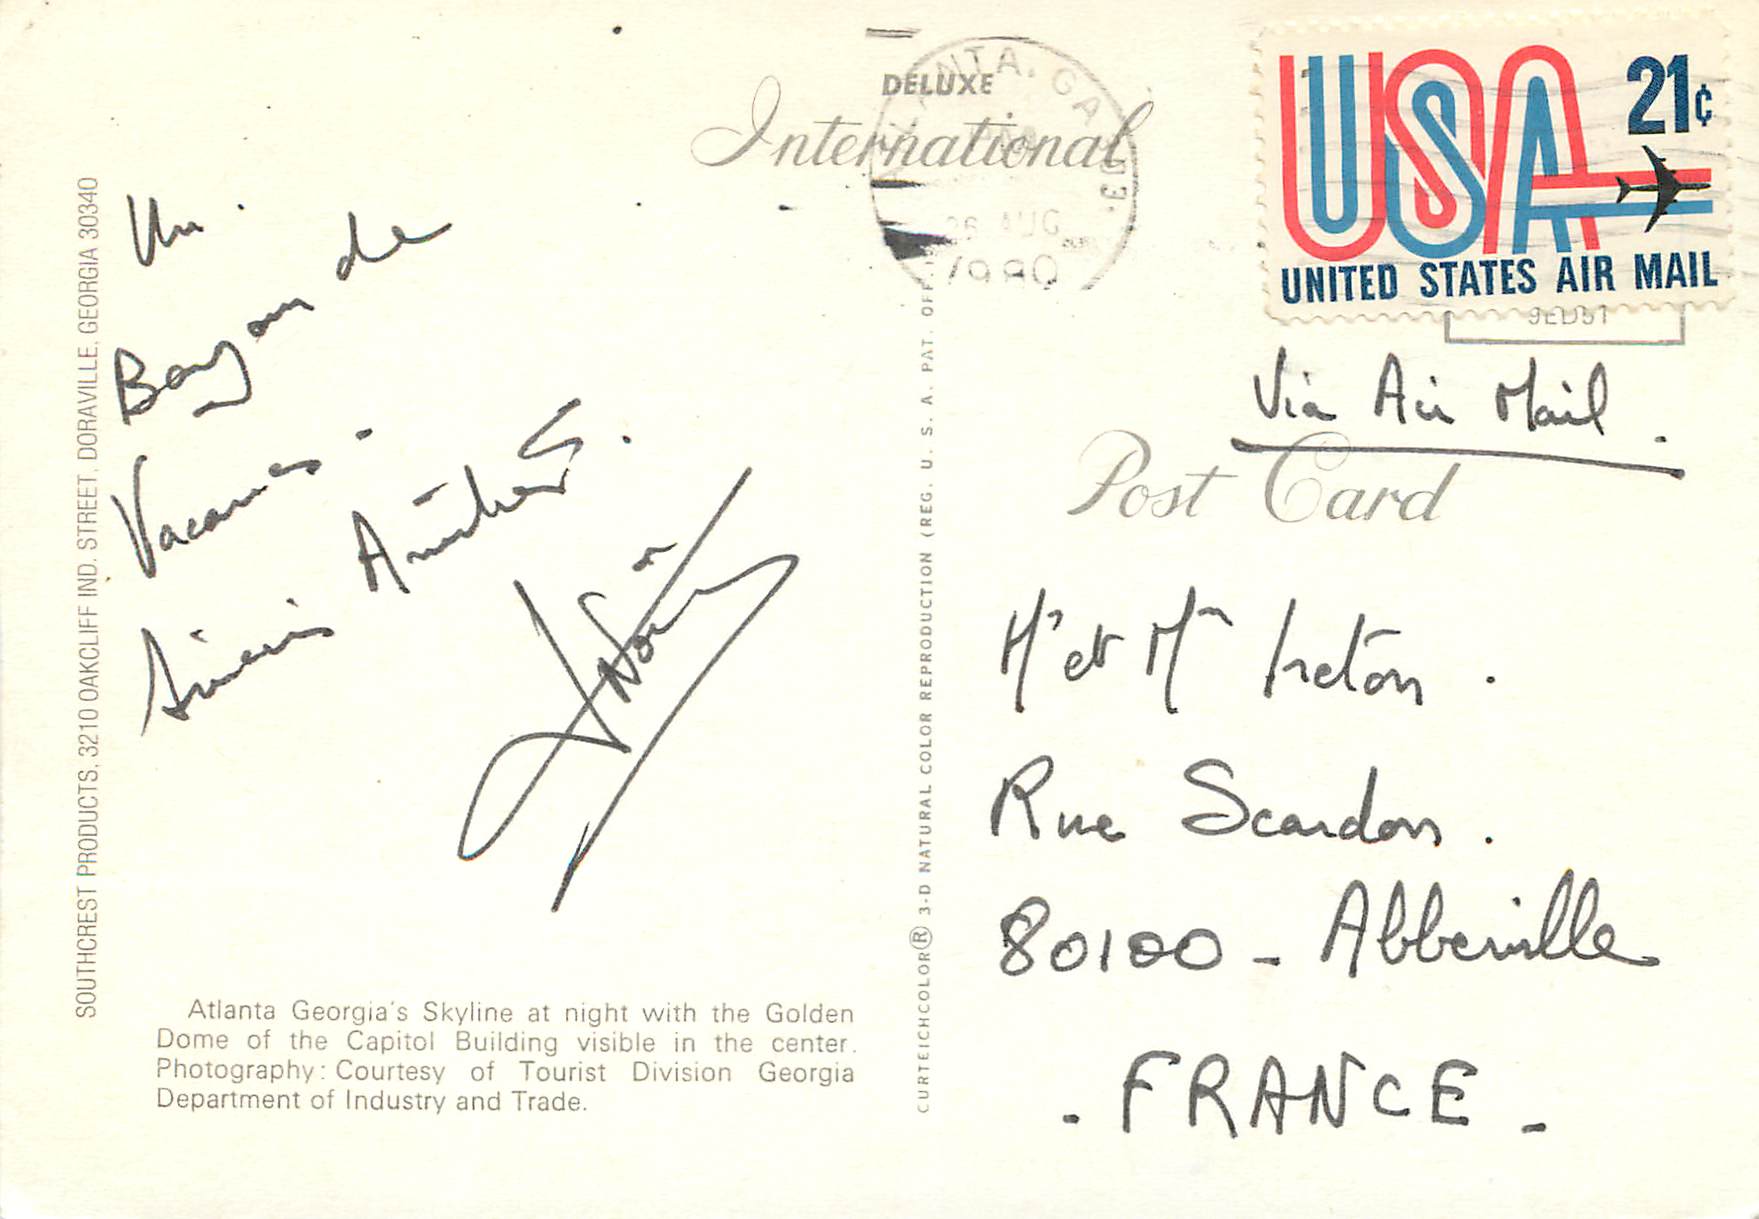 DELUXE
International
ATLANTA, GA 303
PM
26 AUG
1980
USA 21¢
UNITED STATES AIR MAIL
9ED51
Via Air Mail.
Post Card
Un
Bonjour de
Vacances -
Sincères Amitiés.
Mr et Mme Ireton.
Rue Scardon.
80100 - Abbeville
- FRANCE -
Atlanta Georgia's Skyline at night with the Golden
Dome of the Capitol Building visible in the center.
Photography: Courtesy of Tourist Division Georgia
Department of Industry and Trade.
SOUTHCREST PRODUCTS, 3210 OAKCLIFF IND. STREET, DORAVILLE, GEORGIA 30340
CURTEICHCOLOR® 3-D NATURAL COLOR REPRODUCTION (REG. U. S. A. PAT. OFF.